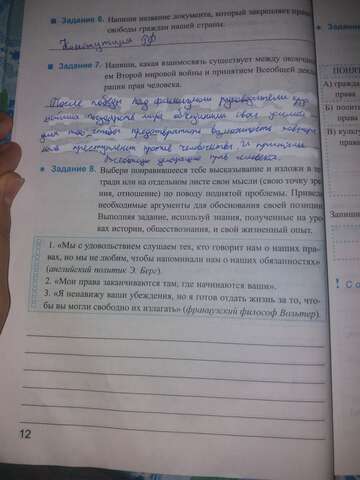 ■ Задание 6. Напиши название документа, который закрепляет права
свободы граждан нашей страны.
Конституция РФ
■ Задание 7. Напиши, какая взаимосвязь существует между окончани
ем Второй мировой войны и принятием Всеобщей декла
рации прав человека.
После победы над фашизмом руководители
государств мира объединили свои усилия
для того, чтобы предотвратить возможность повторе
преступлений против человечества и приняли
Всеобщую декларацию прав человека.
■ Задание 8. Выбери понравившееся тебе высказывание и изложи в те
тради или на отдельном листе свои мысли (свою точку зре
ния, отношение) по поводу поднятой проблемы. Приведи
необходимые аргументы для обоснования своей позиции
Выполняя задание, используй знания, полученные на уро
ках истории, обществознания, и свой жизненный опыт.
1. «Мы с удовольствием слушаем тех, кто говорит нам о наших пра-
вах, но мы не любим, чтобы напоминали нам о наших обязанностях»
(английский политик Э. Берг).
2. «Мои права заканчиваются там, где начинаются ваши».
3. «Я ненавижу ваши убеждения, но я готов отдать жизнь за то, что-
бы вы могли свободно их излагать» (французский философ Вольтер).
12
ПОНЯТ
А) гражда
права
Б) полити
права
В) культ
права
Запиши